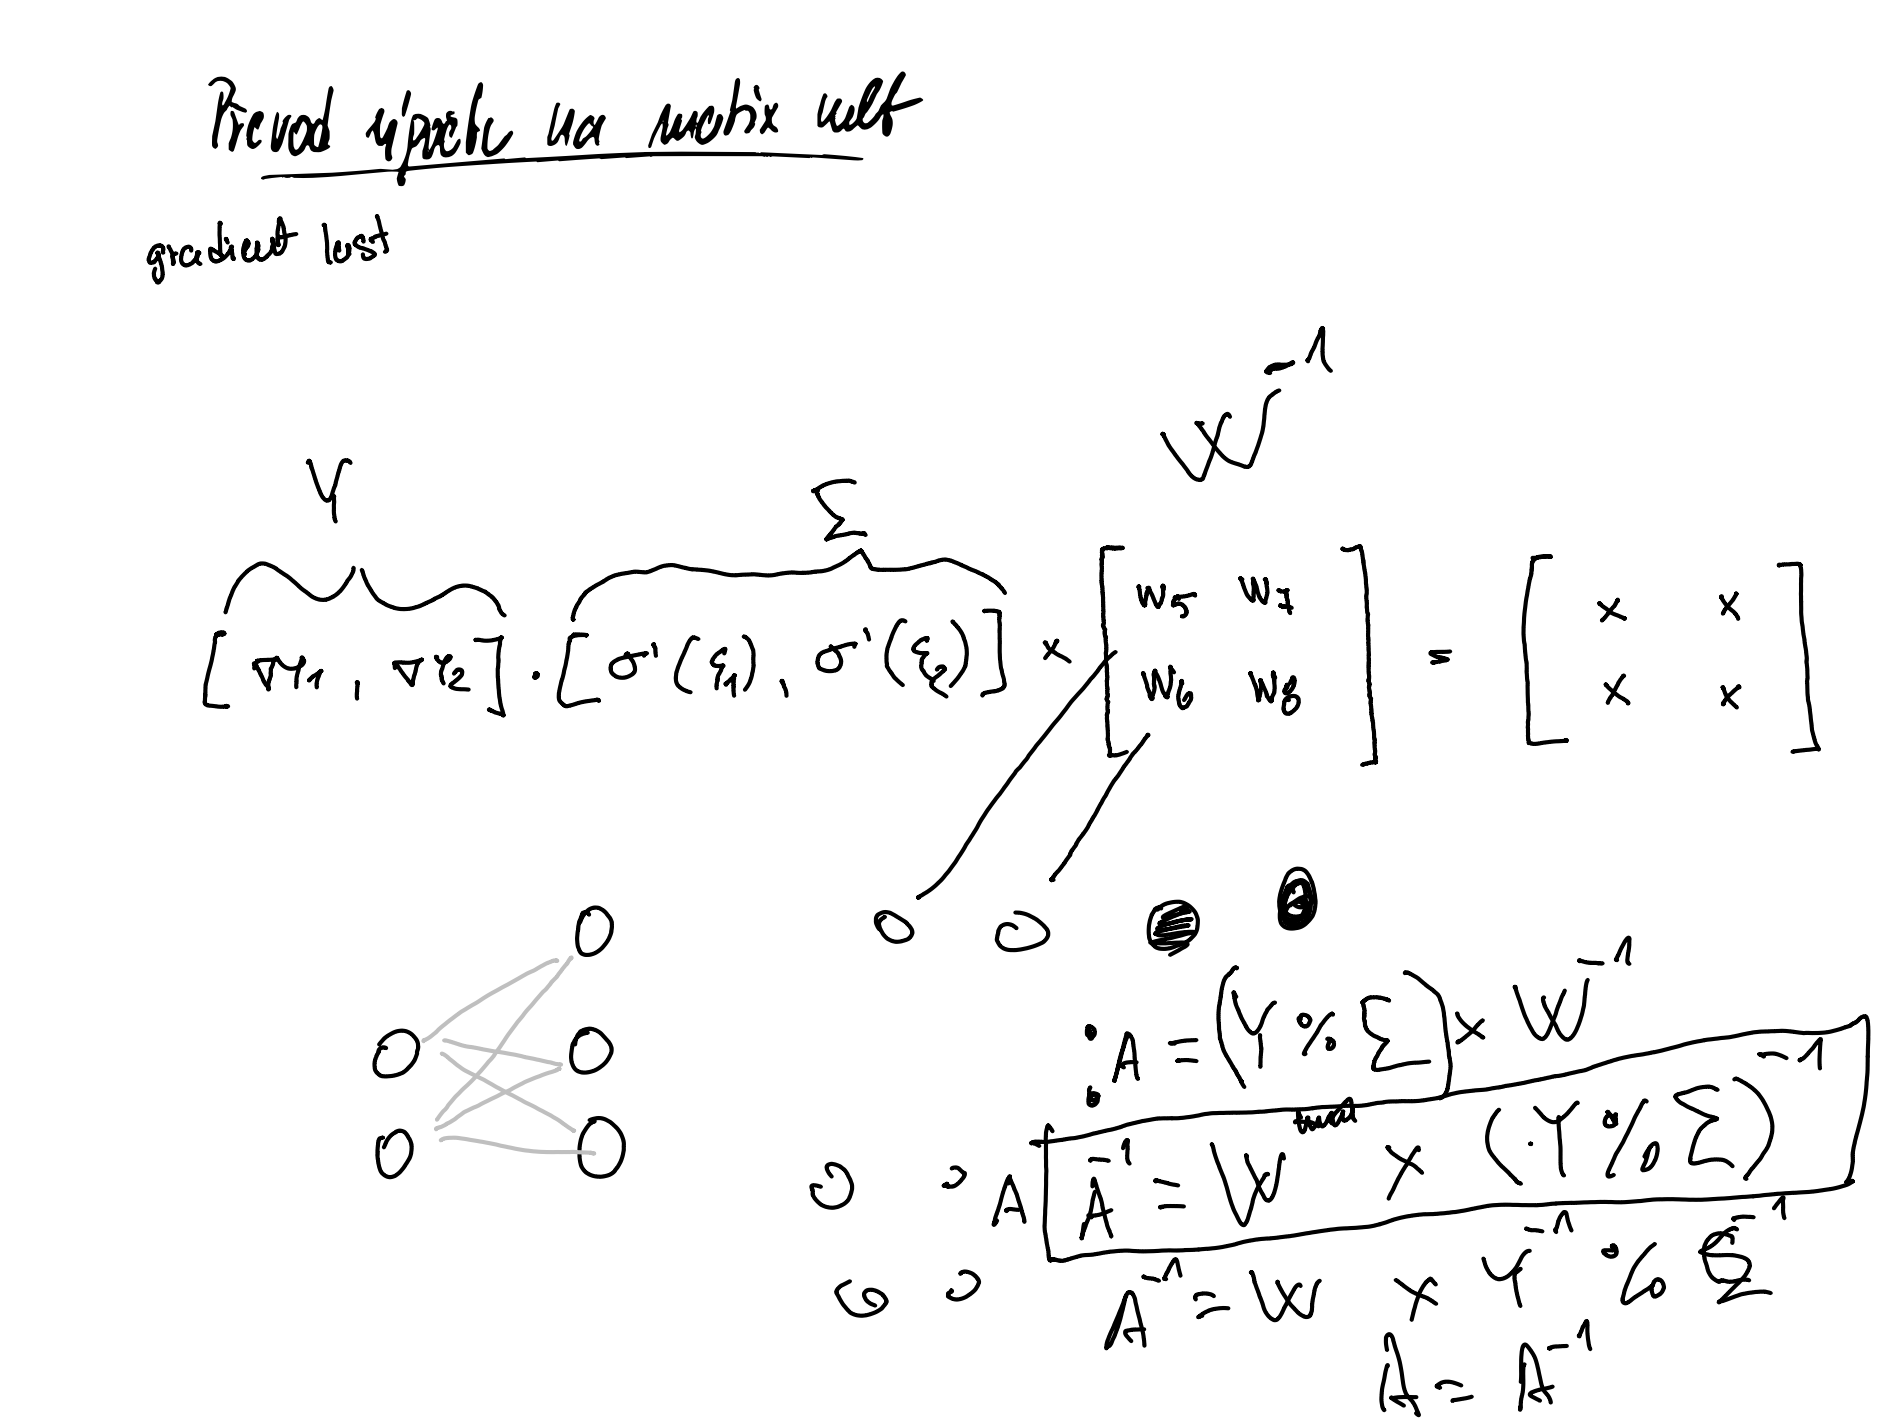 Převod výpočtu na matrix mult
gradient lost
W⁻¹
Y Σ
[∇Y₁, ∇Y₂] · [σ'(ξ₁), σ'(ξ₂)] × [w₅ w₇ w₆ w₈] = [x x x x]
A = (Y % Σ) × W⁻¹
A A⁻¹ = W × (Y % Σ)⁻¹
A⁻¹ = W × Y⁻¹ % Σ⁻¹
A = A⁻¹